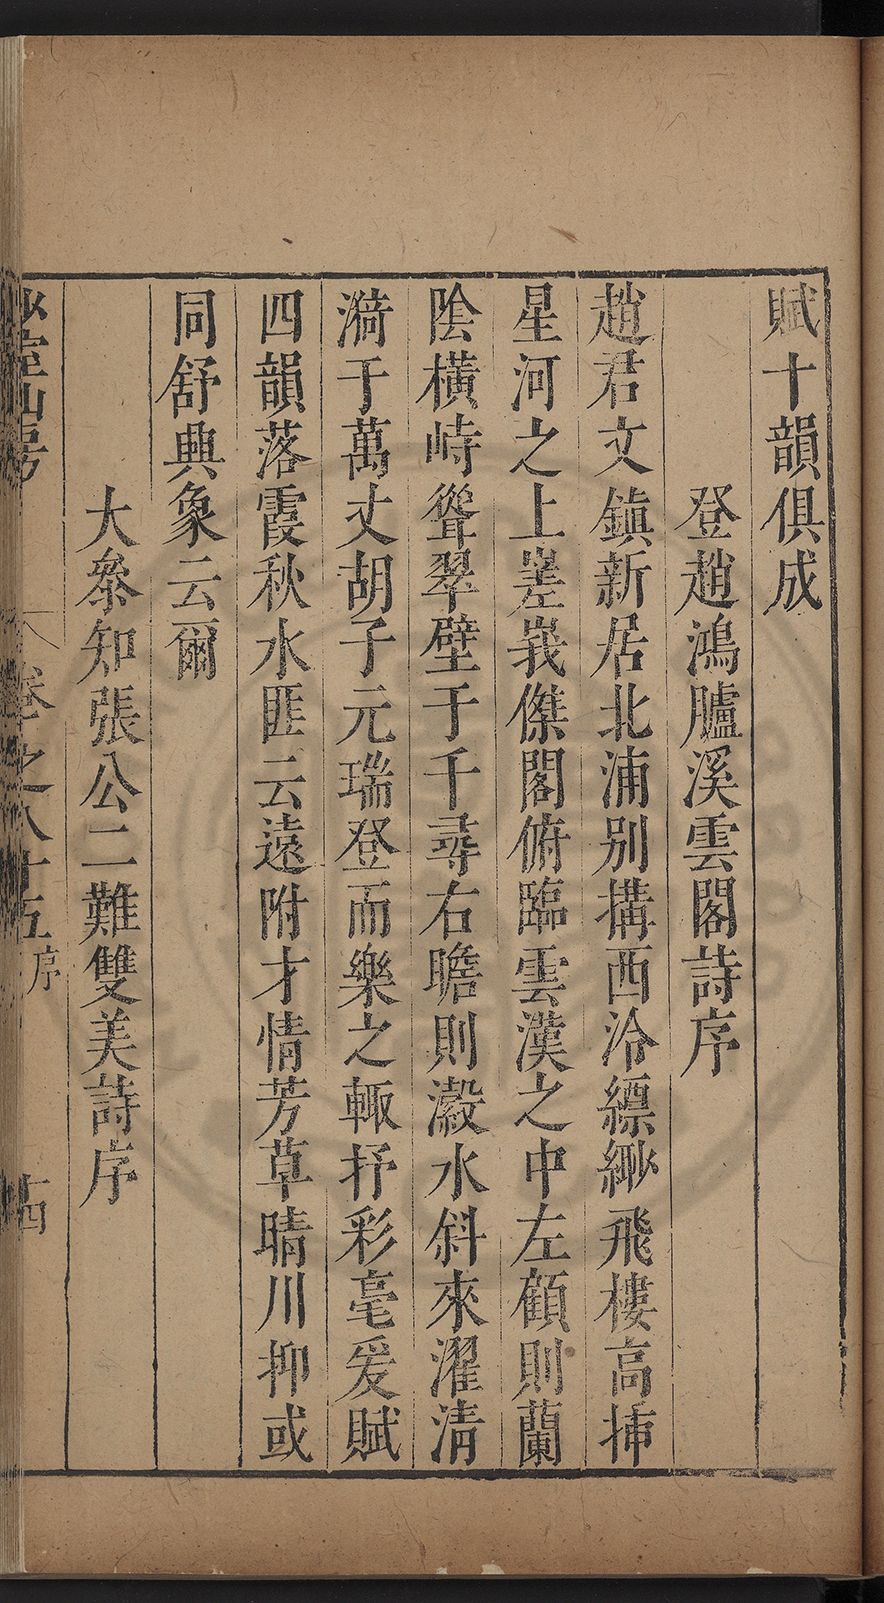 賦十韻俱成
登趙鴻臚溪雲閣詩序
趙君文鎮新居北浦别搆西泠縹緲飛樓高揷
星河之上嵳峩傑閣俯臨雲漢之中左顧則蘭
陰橫峙聳翠壁于千尋右瞻則瀫水斜來濯清
漪于萬丈胡子元瑞登而樂之輙抒彩毫爰賦
四韻落霞秋水匪云遠附才情芳草晴川抑或
同舒興象云爾
大叅知張公二難雙美詩序
山房 卷之八十五 序 十四